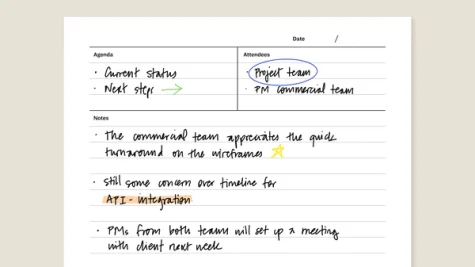 Date /
Agenda
Attendees
· Current status
· Next steps →
· Project team
· PM commercial team
Notes
· The commercial team appreciates the quick
turnaround on the wireframes
· Still some concern over timeline for
API - integration
· PMs from both teams will set up a meeting
with client next week